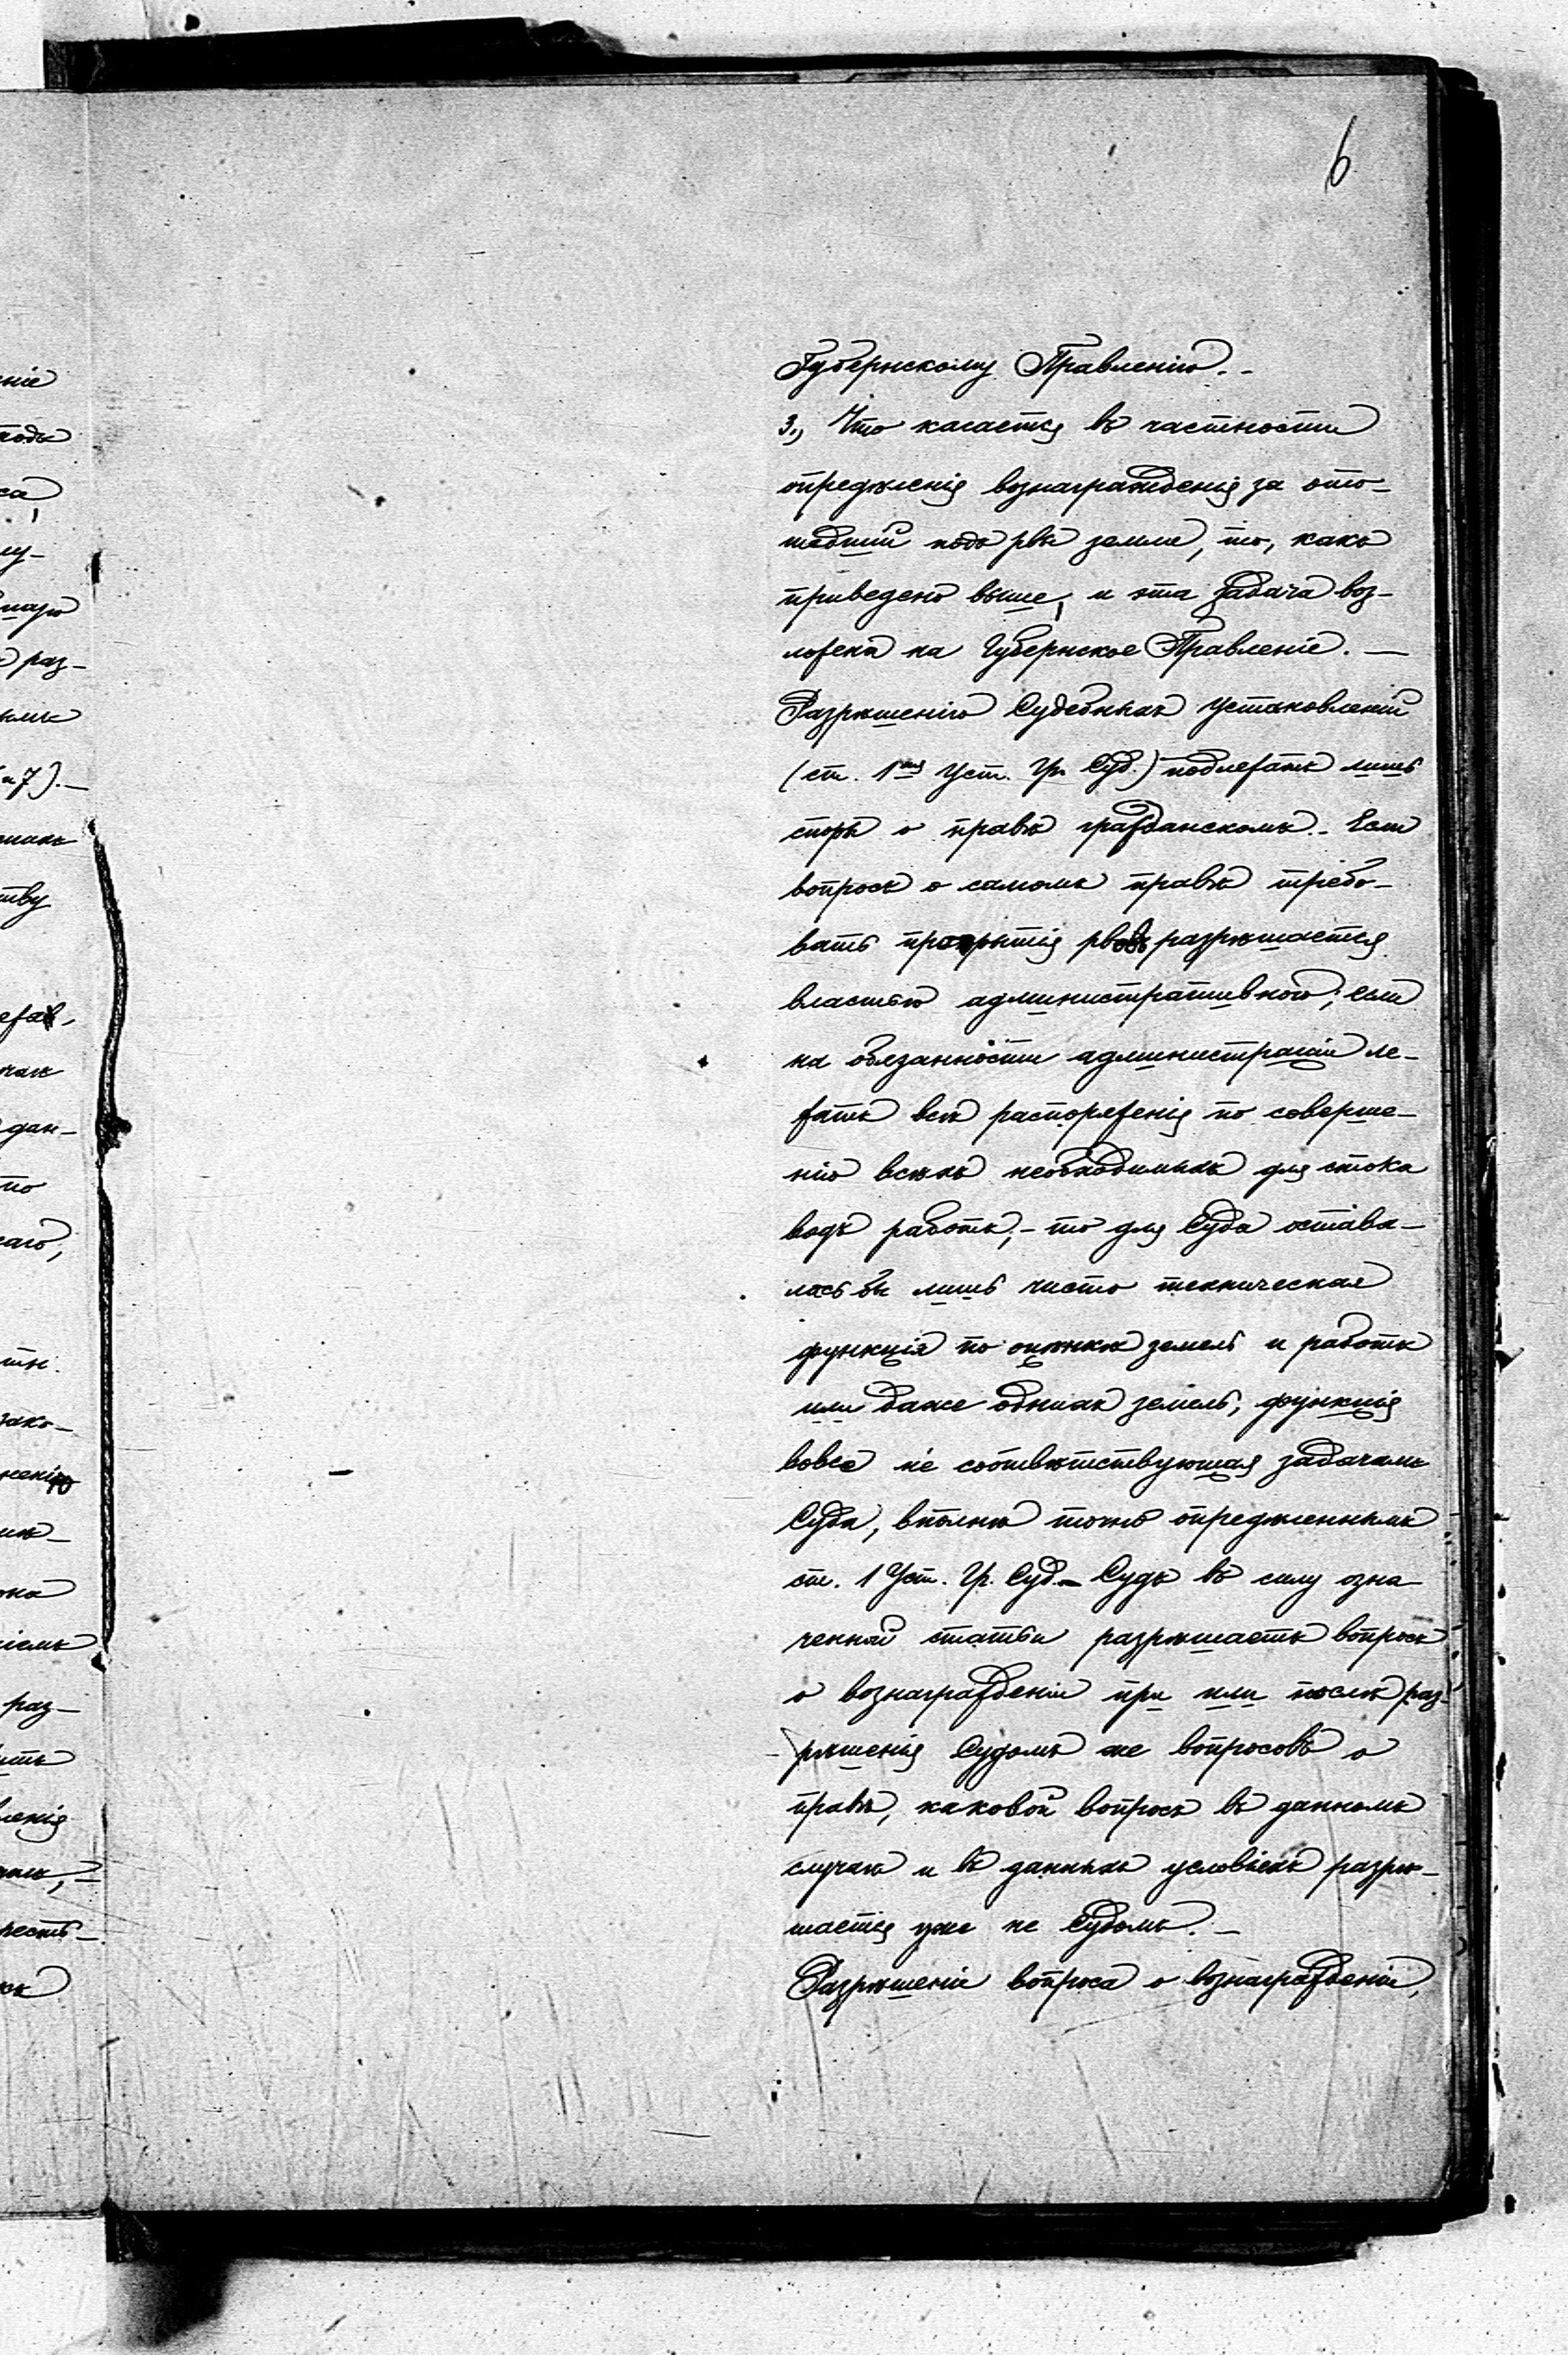 6
Губернскому Правленію. -
3., Что касается въ частности
опредѣленія вознагражденія за ото-
шедшія подъ рвы земли, то, какъ
приведено выше, и эта задача воз-
ложена на Губернское Правленіе. —
Разрѣшенію Судебныхъ Установленій
(ст. 1ая Уст. Гр. Суд.) подлежатъ лишь
споры о правѣ гражданскомъ. - Если
вопросъ о самомъ правѣ требо-
вать прорытія рвовъ разрѣшается
властью административною; если
на обязанности администраціи ле-
жатъ всѣ распоряженія по соверше-
нію всѣхъ необходимыхъ для стока
водъ работъ, - то для Суда остава-
лась бы лишь чисто техническая
функція по оцѣнкѣ земель и работъ
или даже однихъ земель, функція
вовсе не соотвѣтствующая задачамъ
Суда, вполнѣ точно опредѣленнымъ
ст. 1 Уст. Гр. Суд. - Судъ въ силу озна-
ченной статьи разрѣшаетъ вопросъ
о вознагражденіи при или послѣ раз-
рѣшенія Судомъ же вопросовъ о
правѣ, каковой вопросъ въ данномъ
случаѣ и въ данныхъ условіяхъ разрѣ-
шается уже не Судомъ. -
Разрѣшеніе вопроса о вознагражденіи,